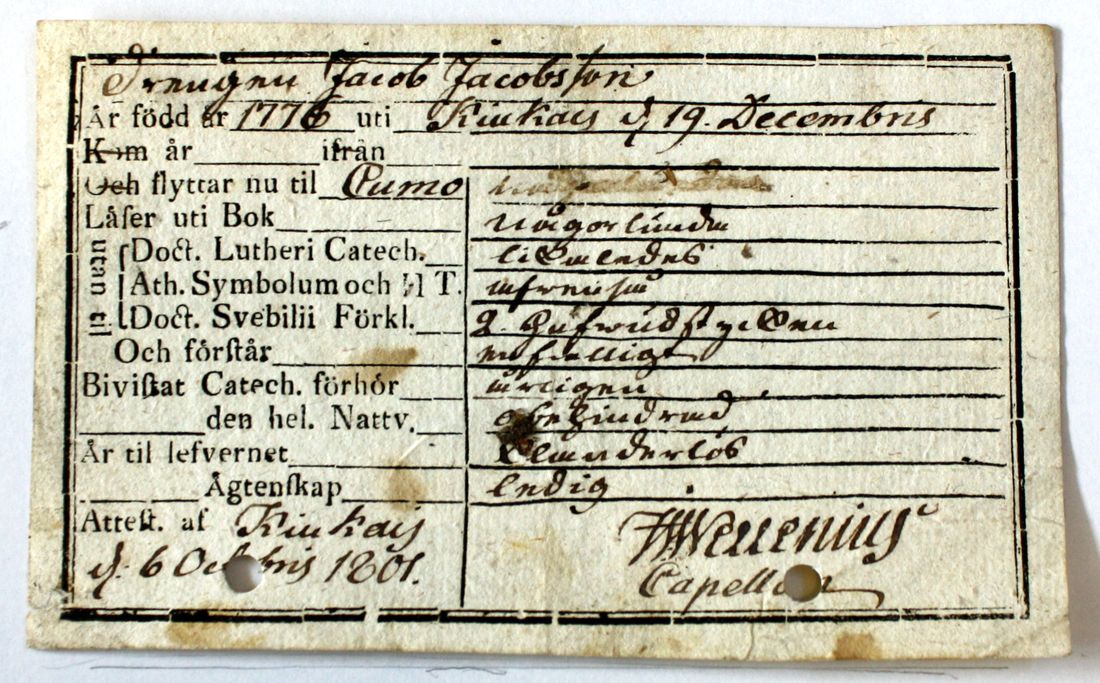 Drengen Jacob Jacobsson
Är född år 1776 uti Kiukais d 19. Decembris
Kom år ifrån
Och flyttar nu til Eumo
Låſer uti Bok någorlunda
utan til
Doct. Lutheri Catech. likaledes
Ath. Symbolum och H T.
Doct. Svebilii Förkl. 2. Hufvudstycken
Och förſtår enfaldigt
Biviſtat Catech. förhör årligen
den hel. Nattv. obehindrad
Är til lefvernet klanderlös
Ägtenſkap ledig
Atteſt. af Kiukais
d. 6 Octobris 1801.
Capellan